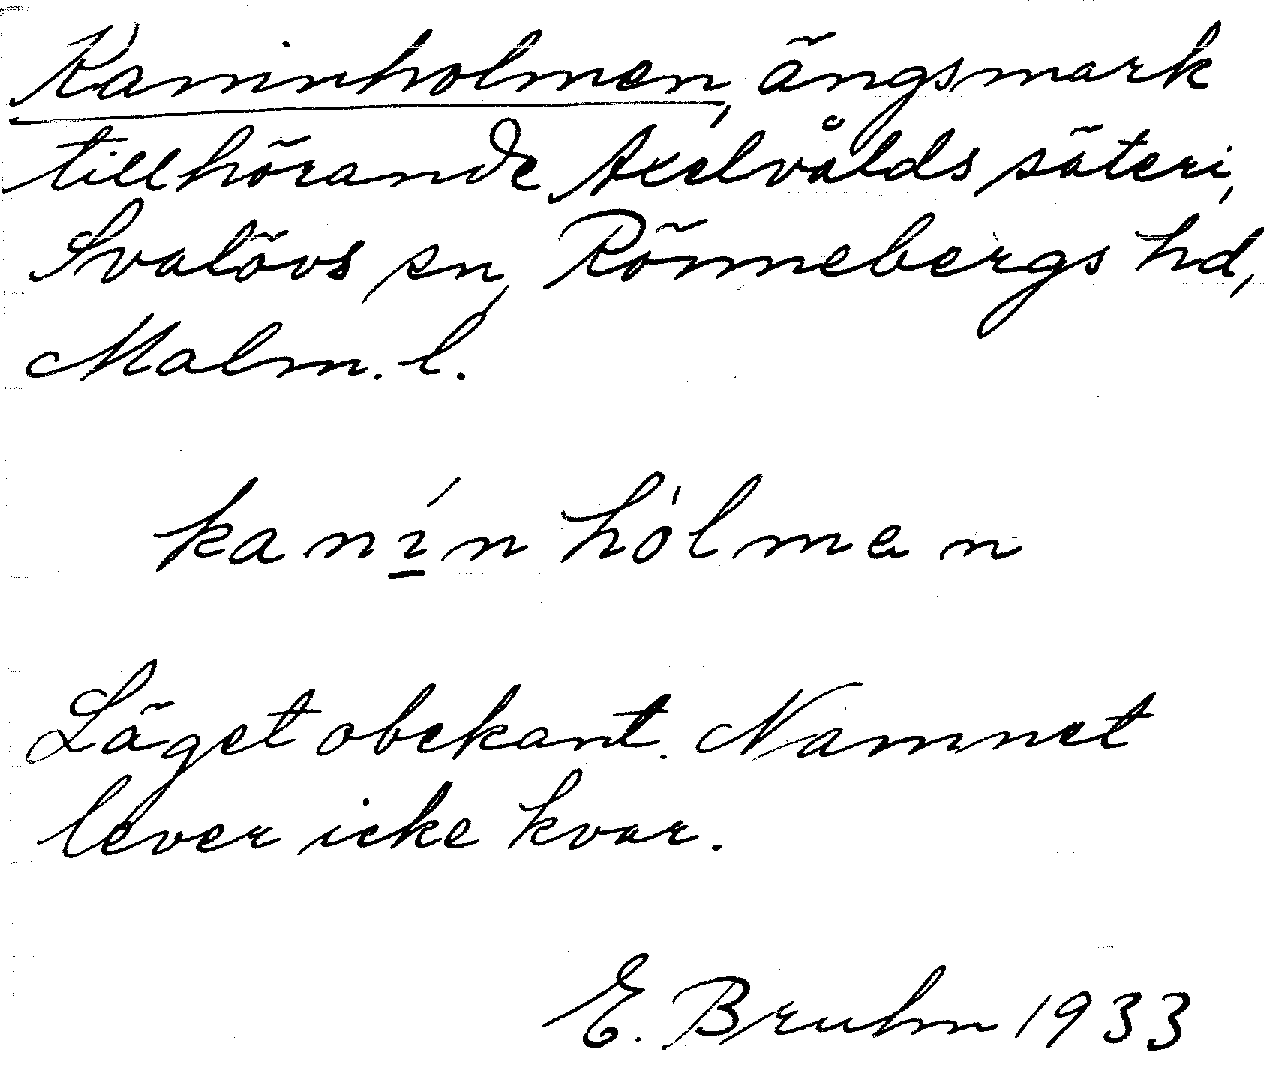 Kaninholmen, ängsmark
tillhörande Axelvålds säteri,
Svalövs sn, Rönnebergs hd,
Malm. l.
kanín hólmen
Läget obekant. Namnet
lever icke kvar.
E. Bruhn 1933